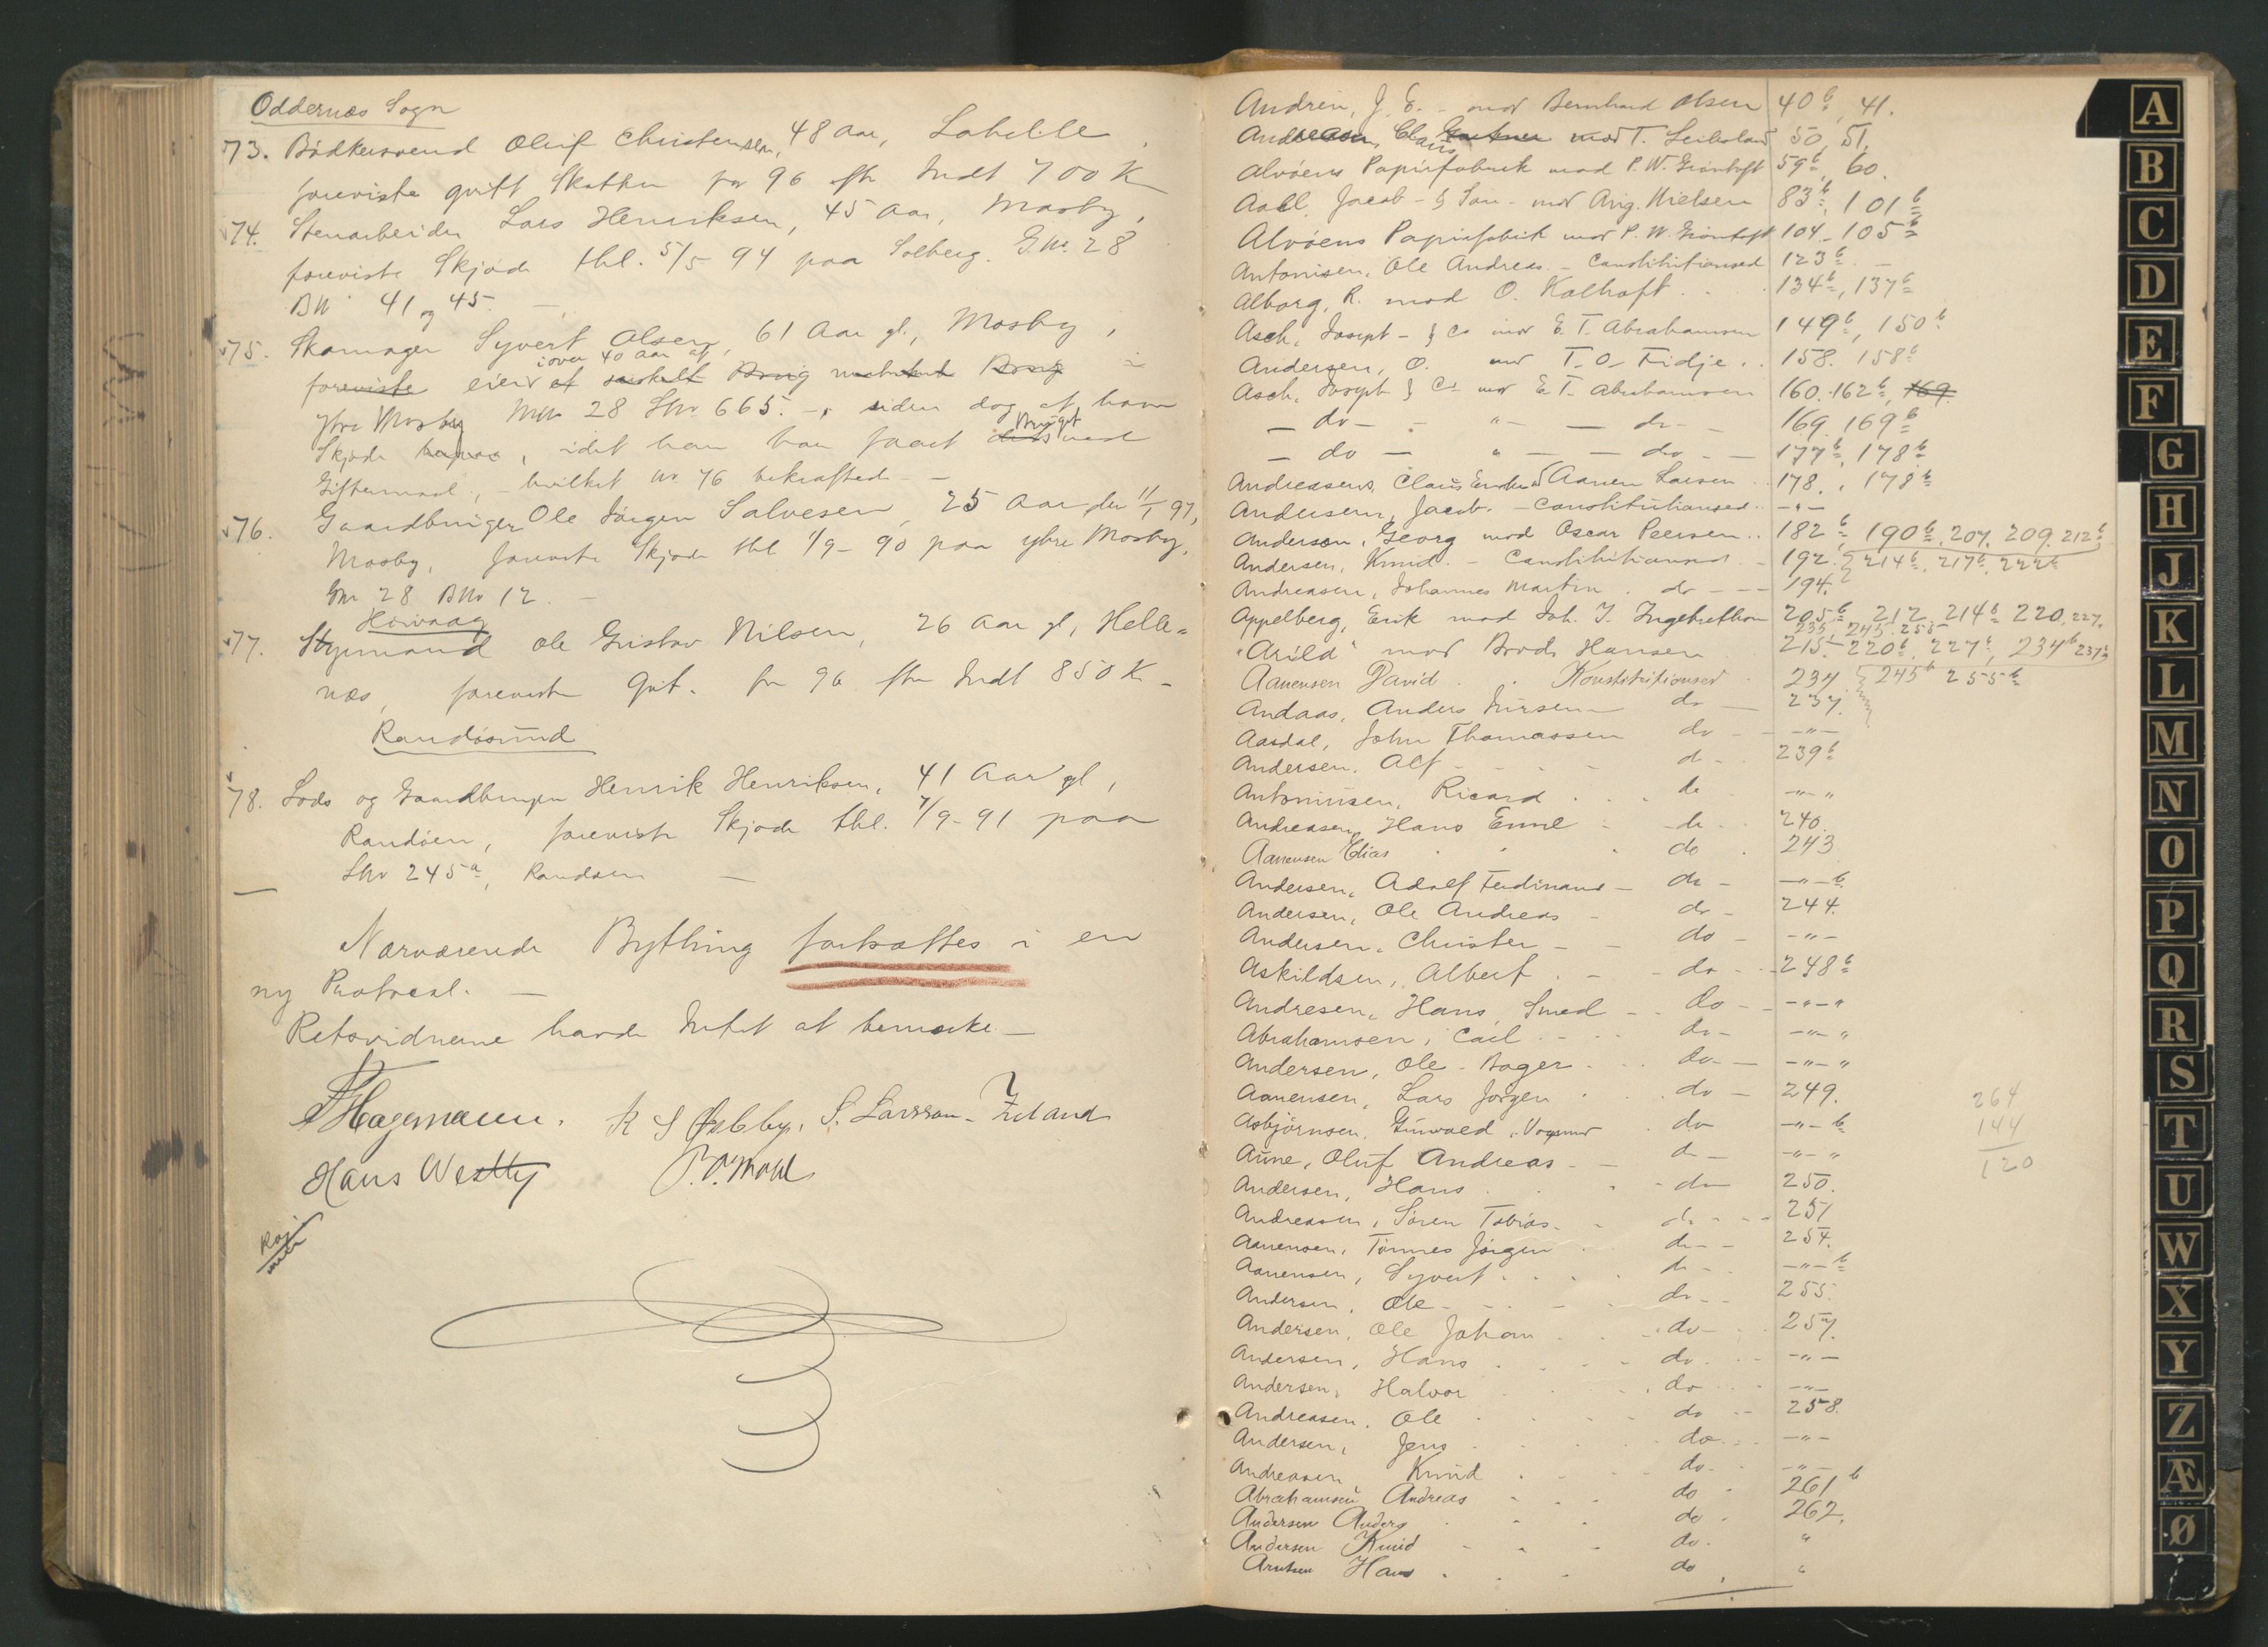 Oddernæs Sogn
73. Bödkersvend Oluf Christensen, 48 Aar, Lahelle,
foreviste qvitt Skatten for 96 efter Indt 700 K
74. Stenarbeider Lars Henriksen, 45 Aar, Mosby,
foreviste Skjøde thl. 5/5 94 paa Solberg. G.No. 28
BN 41 og 45. —
75. Skomager Syvert Olsen, 61 Aar gl., Mosby,
i over 40 Aar af
foreviste eier et særskilt Brug Brug i
ytre Mosby MNo 28 LNo 665. — siden dog at have
Bruget
Skjøde herpaa, idet han har faaet det med
Giftermaal, — hvilket No 76 bekræftede —
76. Gaardbruger Ole Jörgen Salvesen, 25 Aar den 11/1 97,
Mosby, foreviste Skjøde thl 1/9 - 90 paa ytre Mosby,
GNr 28 BNr 12. —
Høivaag
77. Styrmand Ole Gustav Nilsen, 26 Aar gl, Helle=
næs, foreviste Qvit. for 96 efter Indt 850 K —
Randösund
78. Lods og Gaardbruger Henrik Henriksen, 41 Aar gl,
Randöen, foreviste Skjøde thl. 7/9 - 91 paa
LNr 245a, Randöen —
Nærværende Bything fortsættes i en
ny Protocol. —
Retsvidnerne havde Intet at bemærke —
Hagemann. K S Øebby. S. Larsson - Zeland
Hans Westby P. O. Mohl
Andrén, J. E. - mod Bernhard Olsen 40b, 41.
Andreasen, Claus mod T. Leiboland 50, 51.
Alvöens Papirfabrik mod P. W. Gröntoft 59b, 60.
Aall, Jacob - & Sön - mod Aug. Nielsen 83b, 101b
Alvöens Papirfabrik mod P. W. Gröntoft 104 - 105b
Antonisen, Ole Andreas - Constitutionsed 123b -
Alborg, R. mod O. Kalhoft 134b, 137b
Asch, Joseph - & Co mod E. T. Abrahamsen 149b, 150b
Andersen, O. mod T. O. Fidje 158. 158b
Asch, Joseph & Co mod E T. Abrahamsen 160. 162b, 169
— do — " — — do — 169. 169b
— do — " — — do — 177b, 178b
Andreasens, Claus Enke mod Aanen Larsen 178., 178b
Andersen, Jacob. - Constitutionsed - " -
Anderson, Georg mod Oscar Peersen 182b, 190b, 207, 209, 212b
Andersen, Knud. - Constitutionsed 192. 214b, 217b, 222b
Andreasen, Johannes Martin. do 194.
Appelberg, Erik mod Joh. J. Ingebretson 205b, 212, 214b 220, 227,
235, 245, 255
"Arild" mod Brødr Hansen 215 - 220b, 227b, 234b 237b
Aanensen David Konstitutionsed 237 245b 255b
Andaas, Anders do — 237.
Aasdal, John Thomassen do — - " -
Andersen, Alf do - 239b
Antonisen, Ricard do - " - "
Andreasen, Hans Emil do 240.
Aanensen Elias do 243
Andersen, Adolf Ferdinand - do - - " - b
Andersen, Ole Andreas - do - 244.
Andersen, Christen - do - - " -
Askildsen, Albert do - 248b
Andresen, Hans, Smed - do - - " - "
Abrahamsen, Carl do - - " - "
Andersen, Ole - Bager do - - " - "
Aanensen, Lars Jørgen do - 249.
Asbjörnsen, Gunvald, Vognmd do - " - b
Aune, Oluf Andreas do - - " - "
Andersen, Hans do 250.
Andreasen, Sören Tobias do - 251
Aanensen, Tönnes Jörgen do - 254.
Aanensen, Syvert do - - " - b
Andersen, Ole do - 255.
Andersen, Ole Johan do - 257.
Andersen, Hans do - " -
Andersen, Halvor do - " -
Andreasen, Ole do - 258.
Andersen, Jens do - " -
Andreasen Knud do - " -
Abrahamsen Andreas do 261b
Andersen Anders do 262.
Andersen Knud do "
Arntsen Hans do "
264
144
120
A
B
C
D
E
F
G
H
J
K
L
M
N
O
P
Q
R
S
T
U
W
X
Y
Z
Æ
Ø